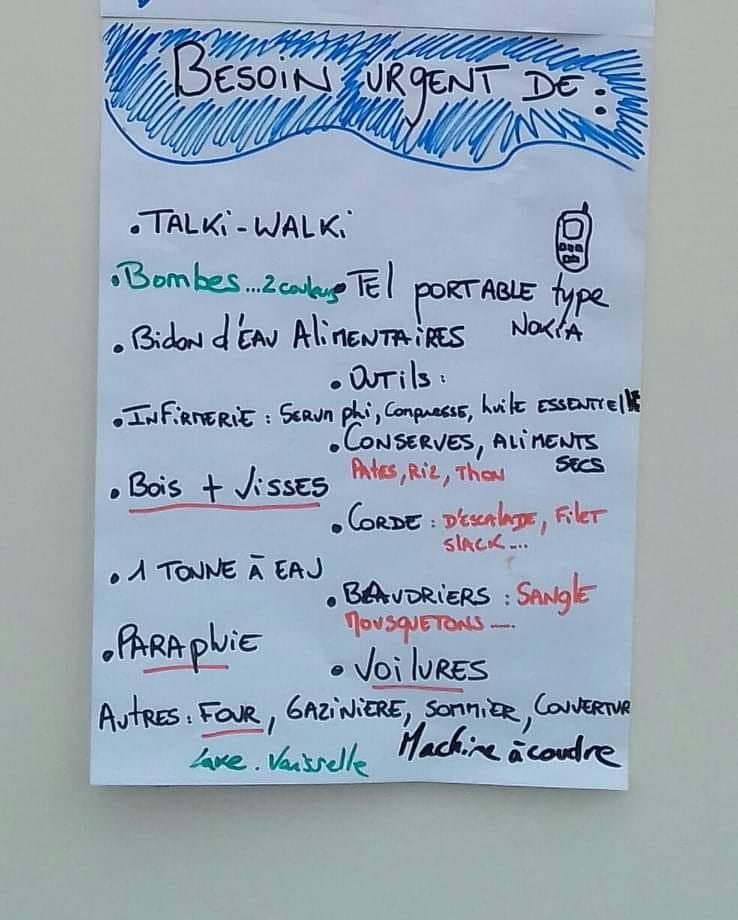 BESOIN URGENT DE :
• TALKi-WALKi
• Bombes...2 couleurs • TEl PORTABLE type
NOKIA
• Bidon d'EAU AliMENTAiRES
• OUTils :
• INFiRMERiE : SERUM phi, Compresse, huile ESSENTiEllE
• CONSERVES, ALiMENTS
SECS
PATES, RiZ, THON
• Bois + VISSES
• CORDE : D'ESCALADE, FilET
SLACK....
• 1 TONNE À EAU
• BAUDRIERS : SANGlE
MOUSQUETONS ....
• PARAPluiE
• VOilURES
AUTRES : FOUR, GAZINIÈRE, SOMMiER, COUVERTUR
Lave. Vaisselle
Machine à coudre